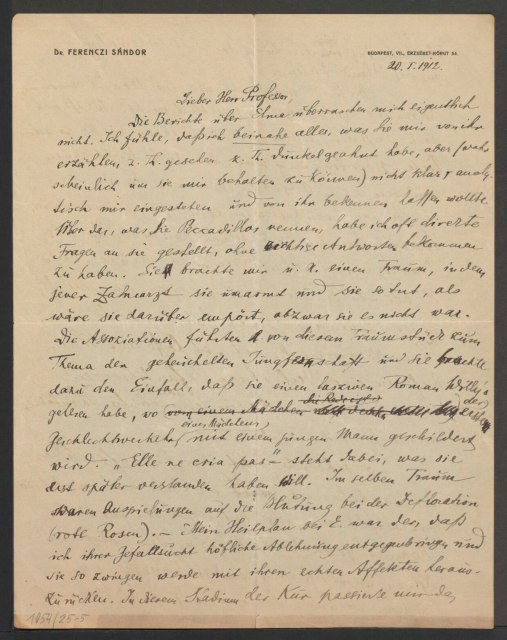 Dr. FERENCZI SÁNDOR
BUDAPEST, VII., ERZSÉBET-KÖRUT 54.
20. I. 1912.
Lieber Herr Professor,
Die Berichte über Elma überraschen mich eigentlich
nicht. Ich fühle, daß ich beinahe alles, was Sie mir von ihr
erzählen, z. Th. gesehen z. Th. dunkel geahnt habe, aber (wahr
scheinlich um sie mir behalten zu können) nicht klar, analy-
tisch mir eingestehen und von ihr bekennen lassen wollte.
Über das, was Sie Peccadillos nennen, habe ich oft direkte
Fragen an sie gestellt, ohne Antworten bekommen
zu haben. Sie brachte mir u. A. einen Traum, in dem
jener Zahnarzt sie umarmt und sie so tut, als
wäre sie darüber empört, obzwar sie es nicht war.
Die Assoziationen führten von diesem Traumstück zum
Thema der geheuchelten Jungfernschaft und sie brachte
dazu den Einfall, daß sie einen lasziven Roman Willy's
gelesen habe, wo von einem Mädchen der
eines Mädchens
Geschlechtsverkehr mit einem jungen Mann geschildert
wird. „Elle ne cria pas" steht dabei, was sie
erst später verstanden haben will. Im selben Traum
waren Anspielungen auf die Blutung bei der Defloration
(rote Rosen). — Mein Heilplan bei E. war der, daß
ich ihrer Gefallsucht höfliche Ablehnung entgegenbringen und
sie so zwingen werde mit ihren echten Affekten heraus-
zurücken. In diesem Stadium der Kur passierte mir da,
1054/25-5